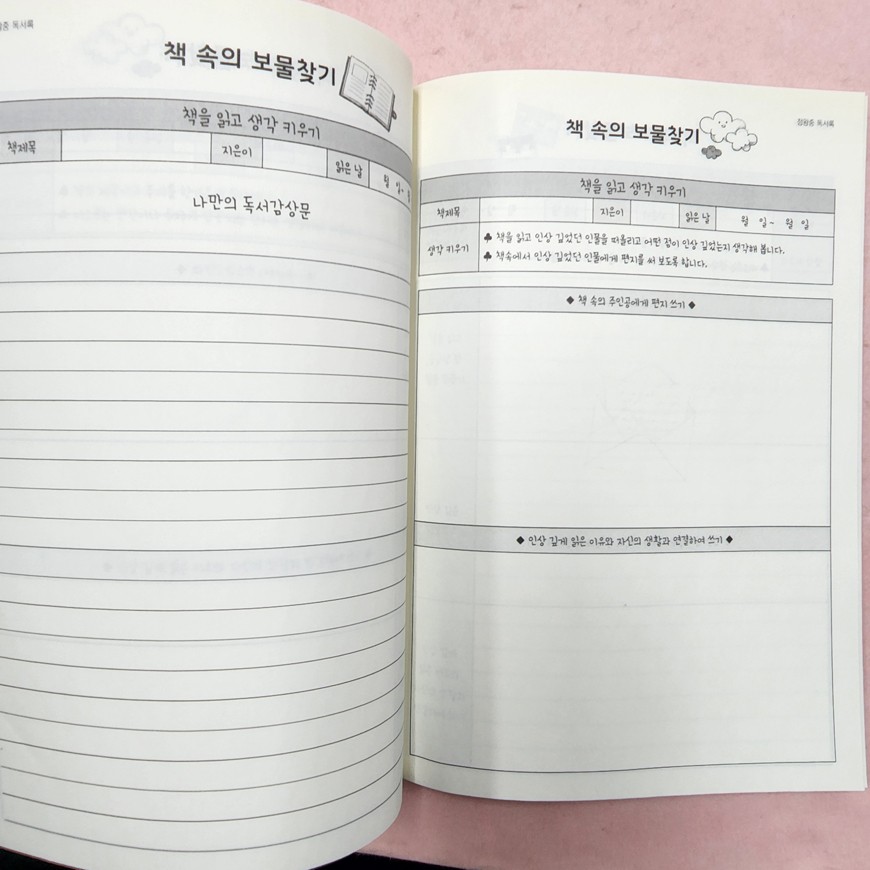 독서록
책 속의 보물찾기
책을 읽고 생각 키우기
책제목 지은이 읽은 날 월 일~
나만의 독서감상문
정왕중 독서록
책 속의 보물찾기
책을 읽고 생각 키우기
책제목 지은이 읽은 날 월 일~ 월 일
생각 키우기
♣ 책을 읽고 인상 깊었던 인물을 떠올리고 어떤 점이 인상 깊었는지 생각해 봅니다.
♣ 책속에서 인상 깊었던 인물에게 편지를 써 보도록 합니다.
◆ 책 속의 주인공에게 편지 쓰기 ◆
◆ 인상 깊게 읽은 이유와 자신의 생활과 연결하여 쓰기 ◆